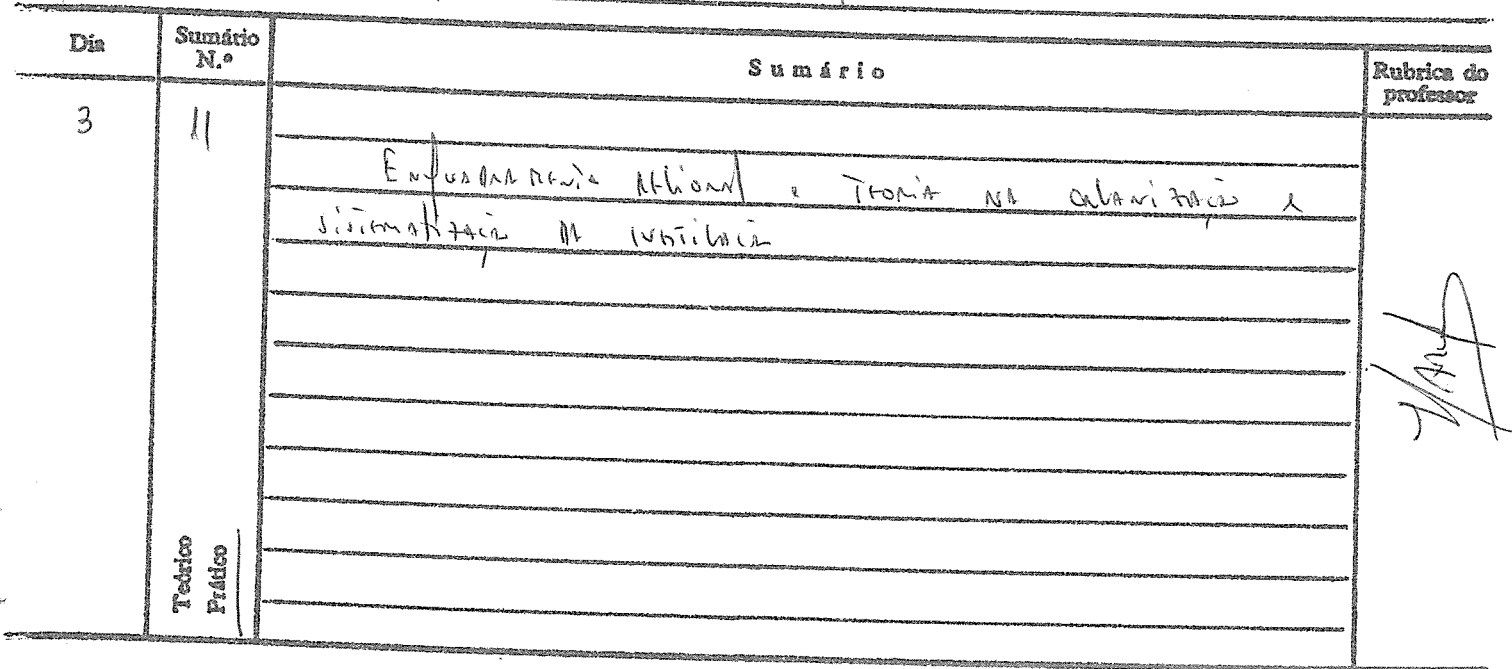 Dia
Sumário N.º
Sumário
Rubrica do professor
3
11
Enquadramento regional e Teoria na organização e
sistematização da investigação
Teórico
Prático